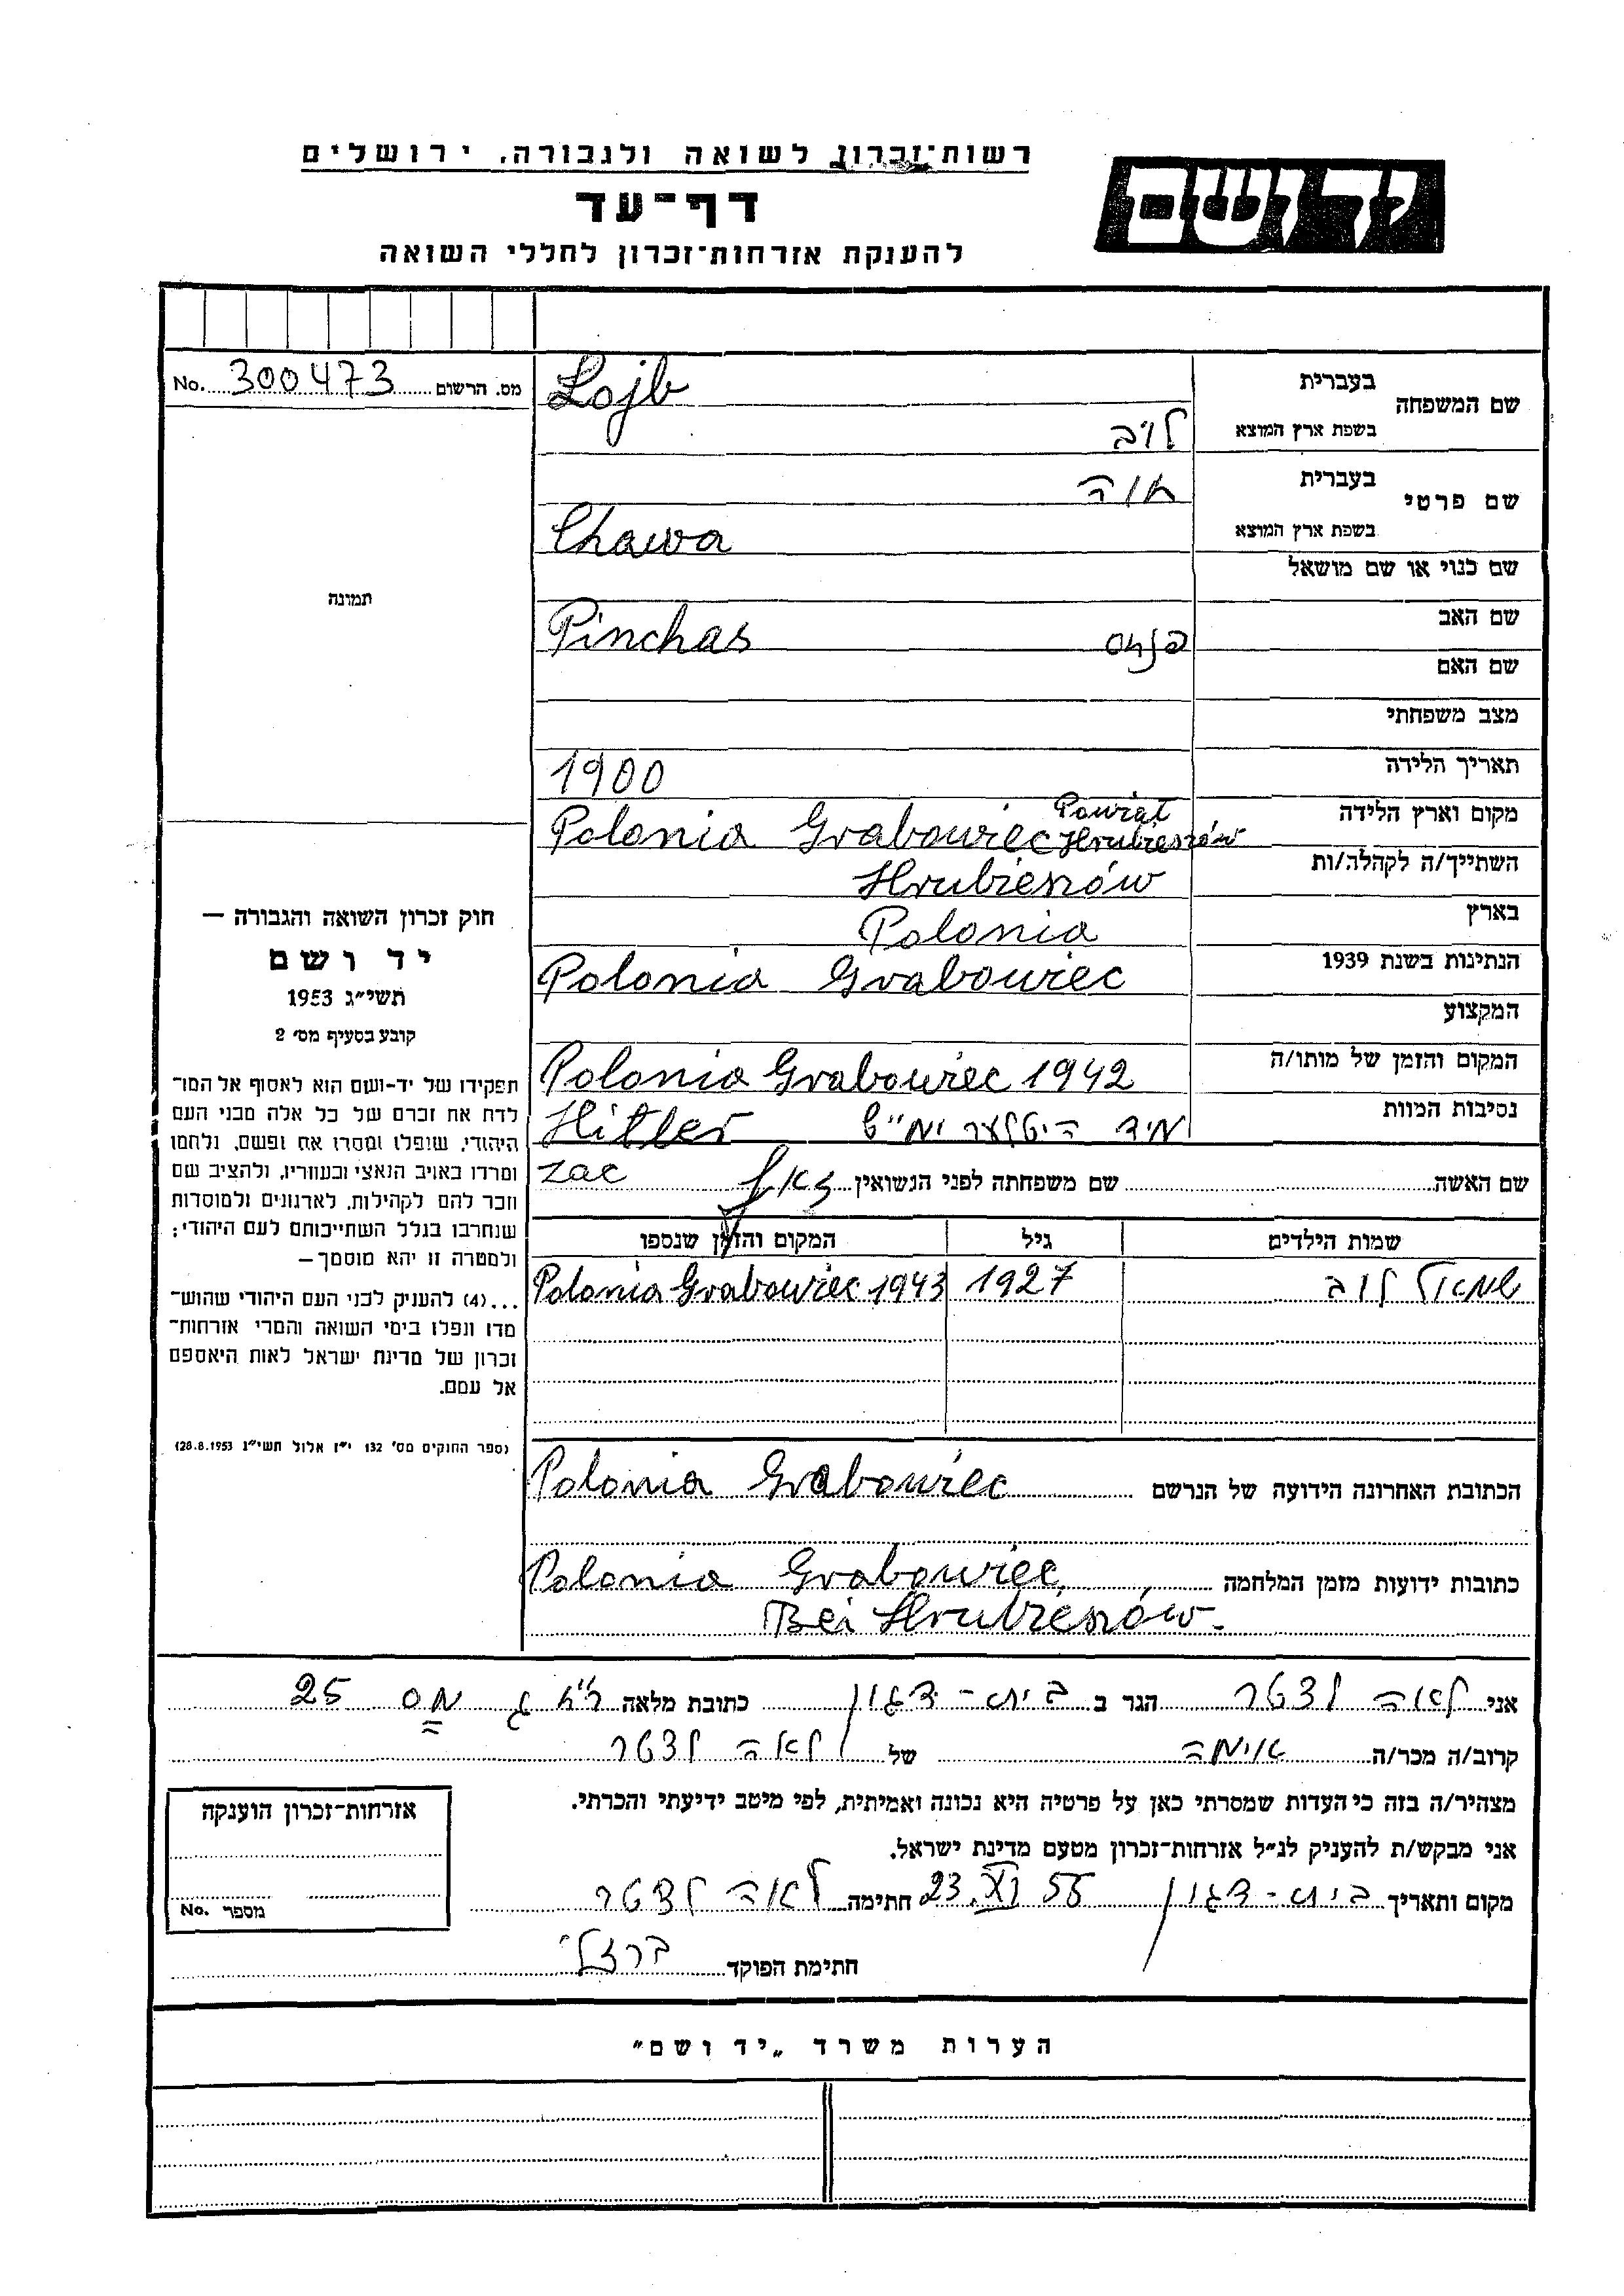 רשות־זכרון לשואה ולגבורה, ירושלים
יד ושם
דף־עד
להענקת אזרחות־זכרון לחללי השואה
מס. הרשום 300473 No.
תמונה
שם המשפחה
בעברית Lojb
בשפת ארץ המוצא לויב
שם פרטי
בעברית חוה
בשפת ארץ המוצא Chawa
שם כנוי או שם מושאל
שם האב פנחס Pinchas
שם האם
מצב משפחתי
תאריך הלידה 1900
מקום וארץ הלידה Polonia Grabowiec Powiat Hrubieszów
השתייך/ה לקהלה/ות Hrubieszów
בארץ Polonia
הנתינות בשנת 1939 Polonia Grabowiec
המקצוע
המקום והזמן של מותו/ה Polonia Grabowiec 1942
נסיבות המוות מיד היטלער ימ"ש Hitler
שם האשה שם משפחתה לפני הנשואין זאק Zac
שמות הילדים גיל המקום והזמן שנספו
שמואל לוב 1927 Polonia Grabowiec 1943
הכתובת האחרונה הידועה של הנרשם Polonia Grabowiec
כתובות ידועות מזמן המלחמה Polonia Grabowiec,
Bei Hrubieszów
חוק זכרון השואה והגבורה —
יד ושם
תשי״ג 1953
קובע בסעיף מס׳ 2
תפקידו של יד-ושם הוא לאסוף אל המו־
לדת את זכרם של כל אלה מבני העם
היהודי, שנפלו ומסרו את נפשם, נלחמו
ומרדו באויב הנאצי ובעוזריו, ולהציב שם
וזכר להם לקהילות, לארגונים ולמוסדות
שנחרבו בגלל השתייכותם לעם היהודי;
ולמטרה זו יהא מוסמך —
...(4) להעניק לבני העם היהודי שהוש־
מדו ונפלו בימי השואה והמרי אזרחות־
זכרון של מדינת ישראל לאות היאספם
אל עמם.
(ספר החוקים מס׳ 132 י״ז אלול תשי״ג 28.8.1953)
אני לאה לצטר הגר ב בית-דגון כתובת מלאה מס 25
קרוב/ה מכר/ה אימה של לאה לצטר
מצהיר/ה בזה כי העדות שמסרתי כאן על פרטיה היא נכונה ואמיתית, לפי מיטב ידיעתי והכרתי.
אני מבקש/ת להעניק לנ״ל אזרחות־זכרון מטעם מדינת ישראל.
מקום ותאריך בית-דגון 23.XI 55 חתימה לאה לצטר
חתימת הפוקד ברזלי
אזרחות־זכרון הוענקה
מספר No.
הערות משרד „יד ושם״